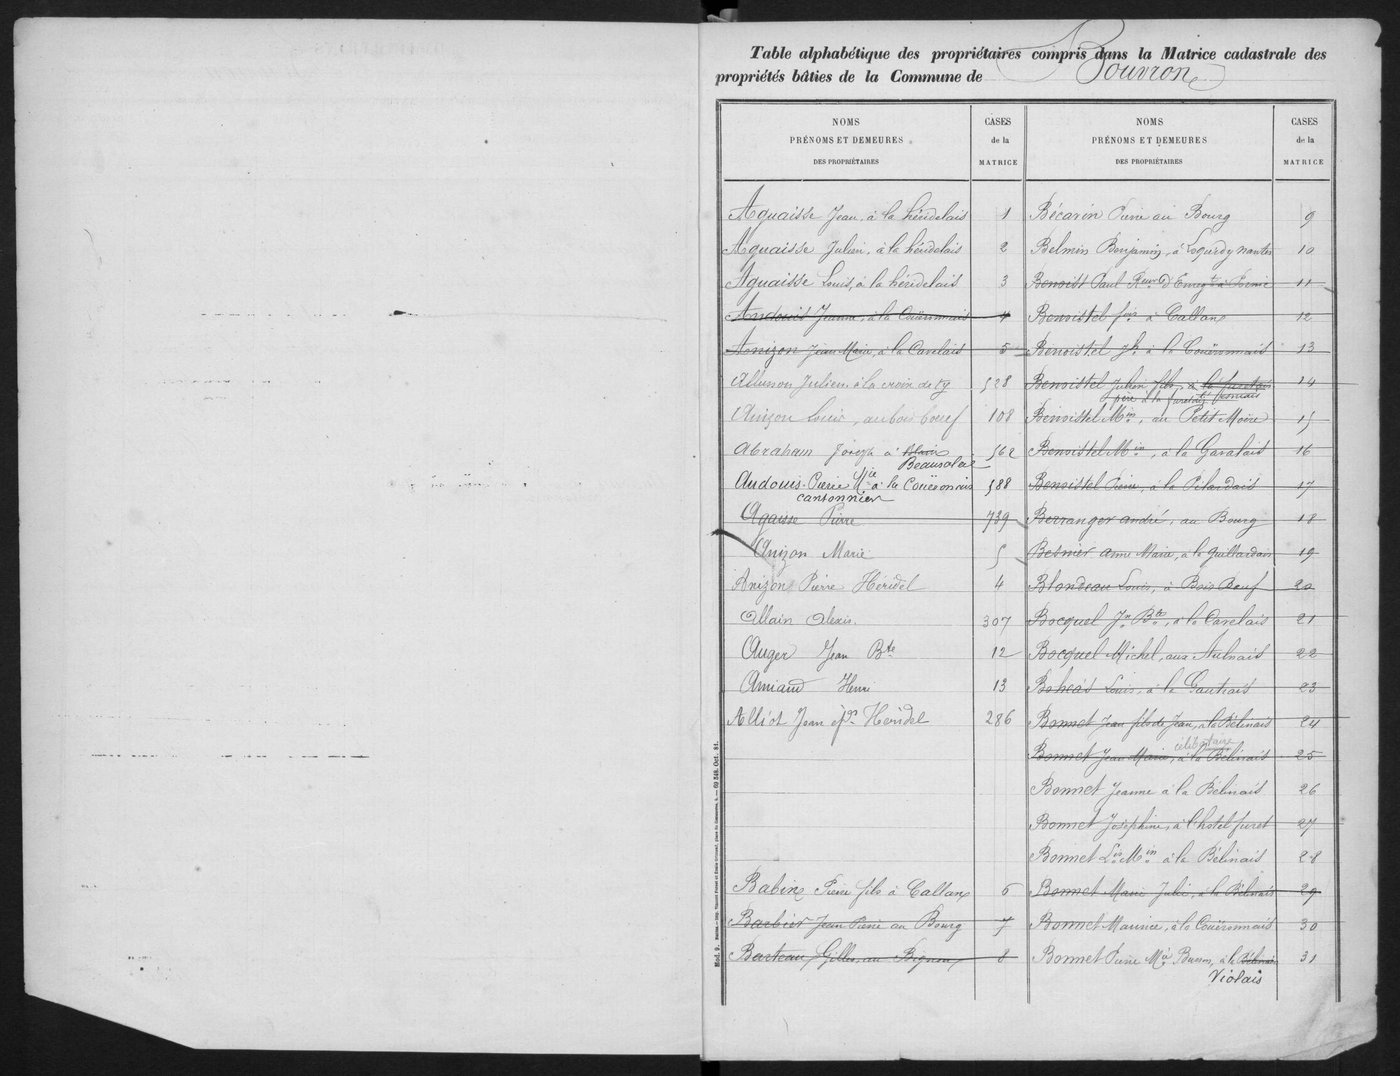 Table alphabétique des propriétaires compris dans la Matrice cadastrale des
propriétés bâties de la Commune de Bouvron
NOMS
PRÉNOMS ET DEMEURES
DES PROPRIÉTAIRES
CASES
de la
MATRICE
Aguaisse Jean, à la héridelais 1
Aguaisse Julien, à la héridelais 2
Aguaisse Louis, à la héridelais 3
Andouis Jeanne, à la Couëronnais 4
Anizon Jean Marie, à la Cavelais 5
Julien à la croix de 528
Anizon Louis, au bois boeuf 108
Abraham Joseph à Blain 562
Beausoleil
Audouis Pierre Mie à la Couëronnais 588
cantonnier
Agaisse Pierre 739
Anizon Marie 5
Anizon Pierre Héridel 4
Allain Alexis 307
Auger Jean Bte 12
Amiaud Henri 13
Alliot Jean Héridel 286
Babin Pierre fils à Callan 6
Barbier Jean Pierre au Bourg 7
Barteau Gilles, au Bignon 8
NOMS
PRÉNOMS ET DEMEURES
DES PROPRIÉTAIRES
CASES
de la
MATRICE
Bécavin Pierre au Bourg 9
Belmin Benjamin, à Nantes 10
Benoist Paul d'Enregt à 11
Benoistel à Callan 12
Benoistel Jh à la Couëronnais 13
Benoistel Julien fils, à la 14
père à la
Benoistel Min, au Petit Moire 15
Benoistel Min, à la Gavalais 16
Benoistel Pierre, à la Pélardais 17
Berranger andré, au Bourg 18
Besnier anne Marie, à la Guillardais 19
Blondeau Louis, à Bois Boeuf 20
Bocquel Jn Bte, à la Cavelais 21
Bocquel Michel, aux Aulnais 22
Louis, à la Gautrais 23
Bonnet Jean fils de Jean, à la Bélinais 24
célibataire
Bonnet Jean Marie, à la Bélinais 25
Bonnet Jeanne à la Bélinais 26
Bonnet Joséphine, à l'hotel furet 27
Bonnet Ls Min à la Bélinais 28
Bonnet Marie Julie, à la Bélinais 29
Bonnet Maurice, à la Couëronnais 30
Bonnet Pierre Ma Busson, à la Bélinais 31
Violais